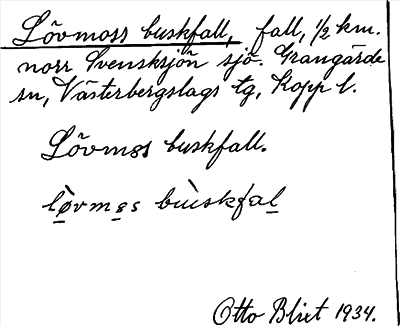 Lövmoss buskfall, fall, ½ km.
norr Svensksjön sjö. Grangärde
sn, Västerbergslags tg, Kopp l.
Lövmos buskfall.
lø̀vmɷs bùskfal
Otto Blixt 1934.